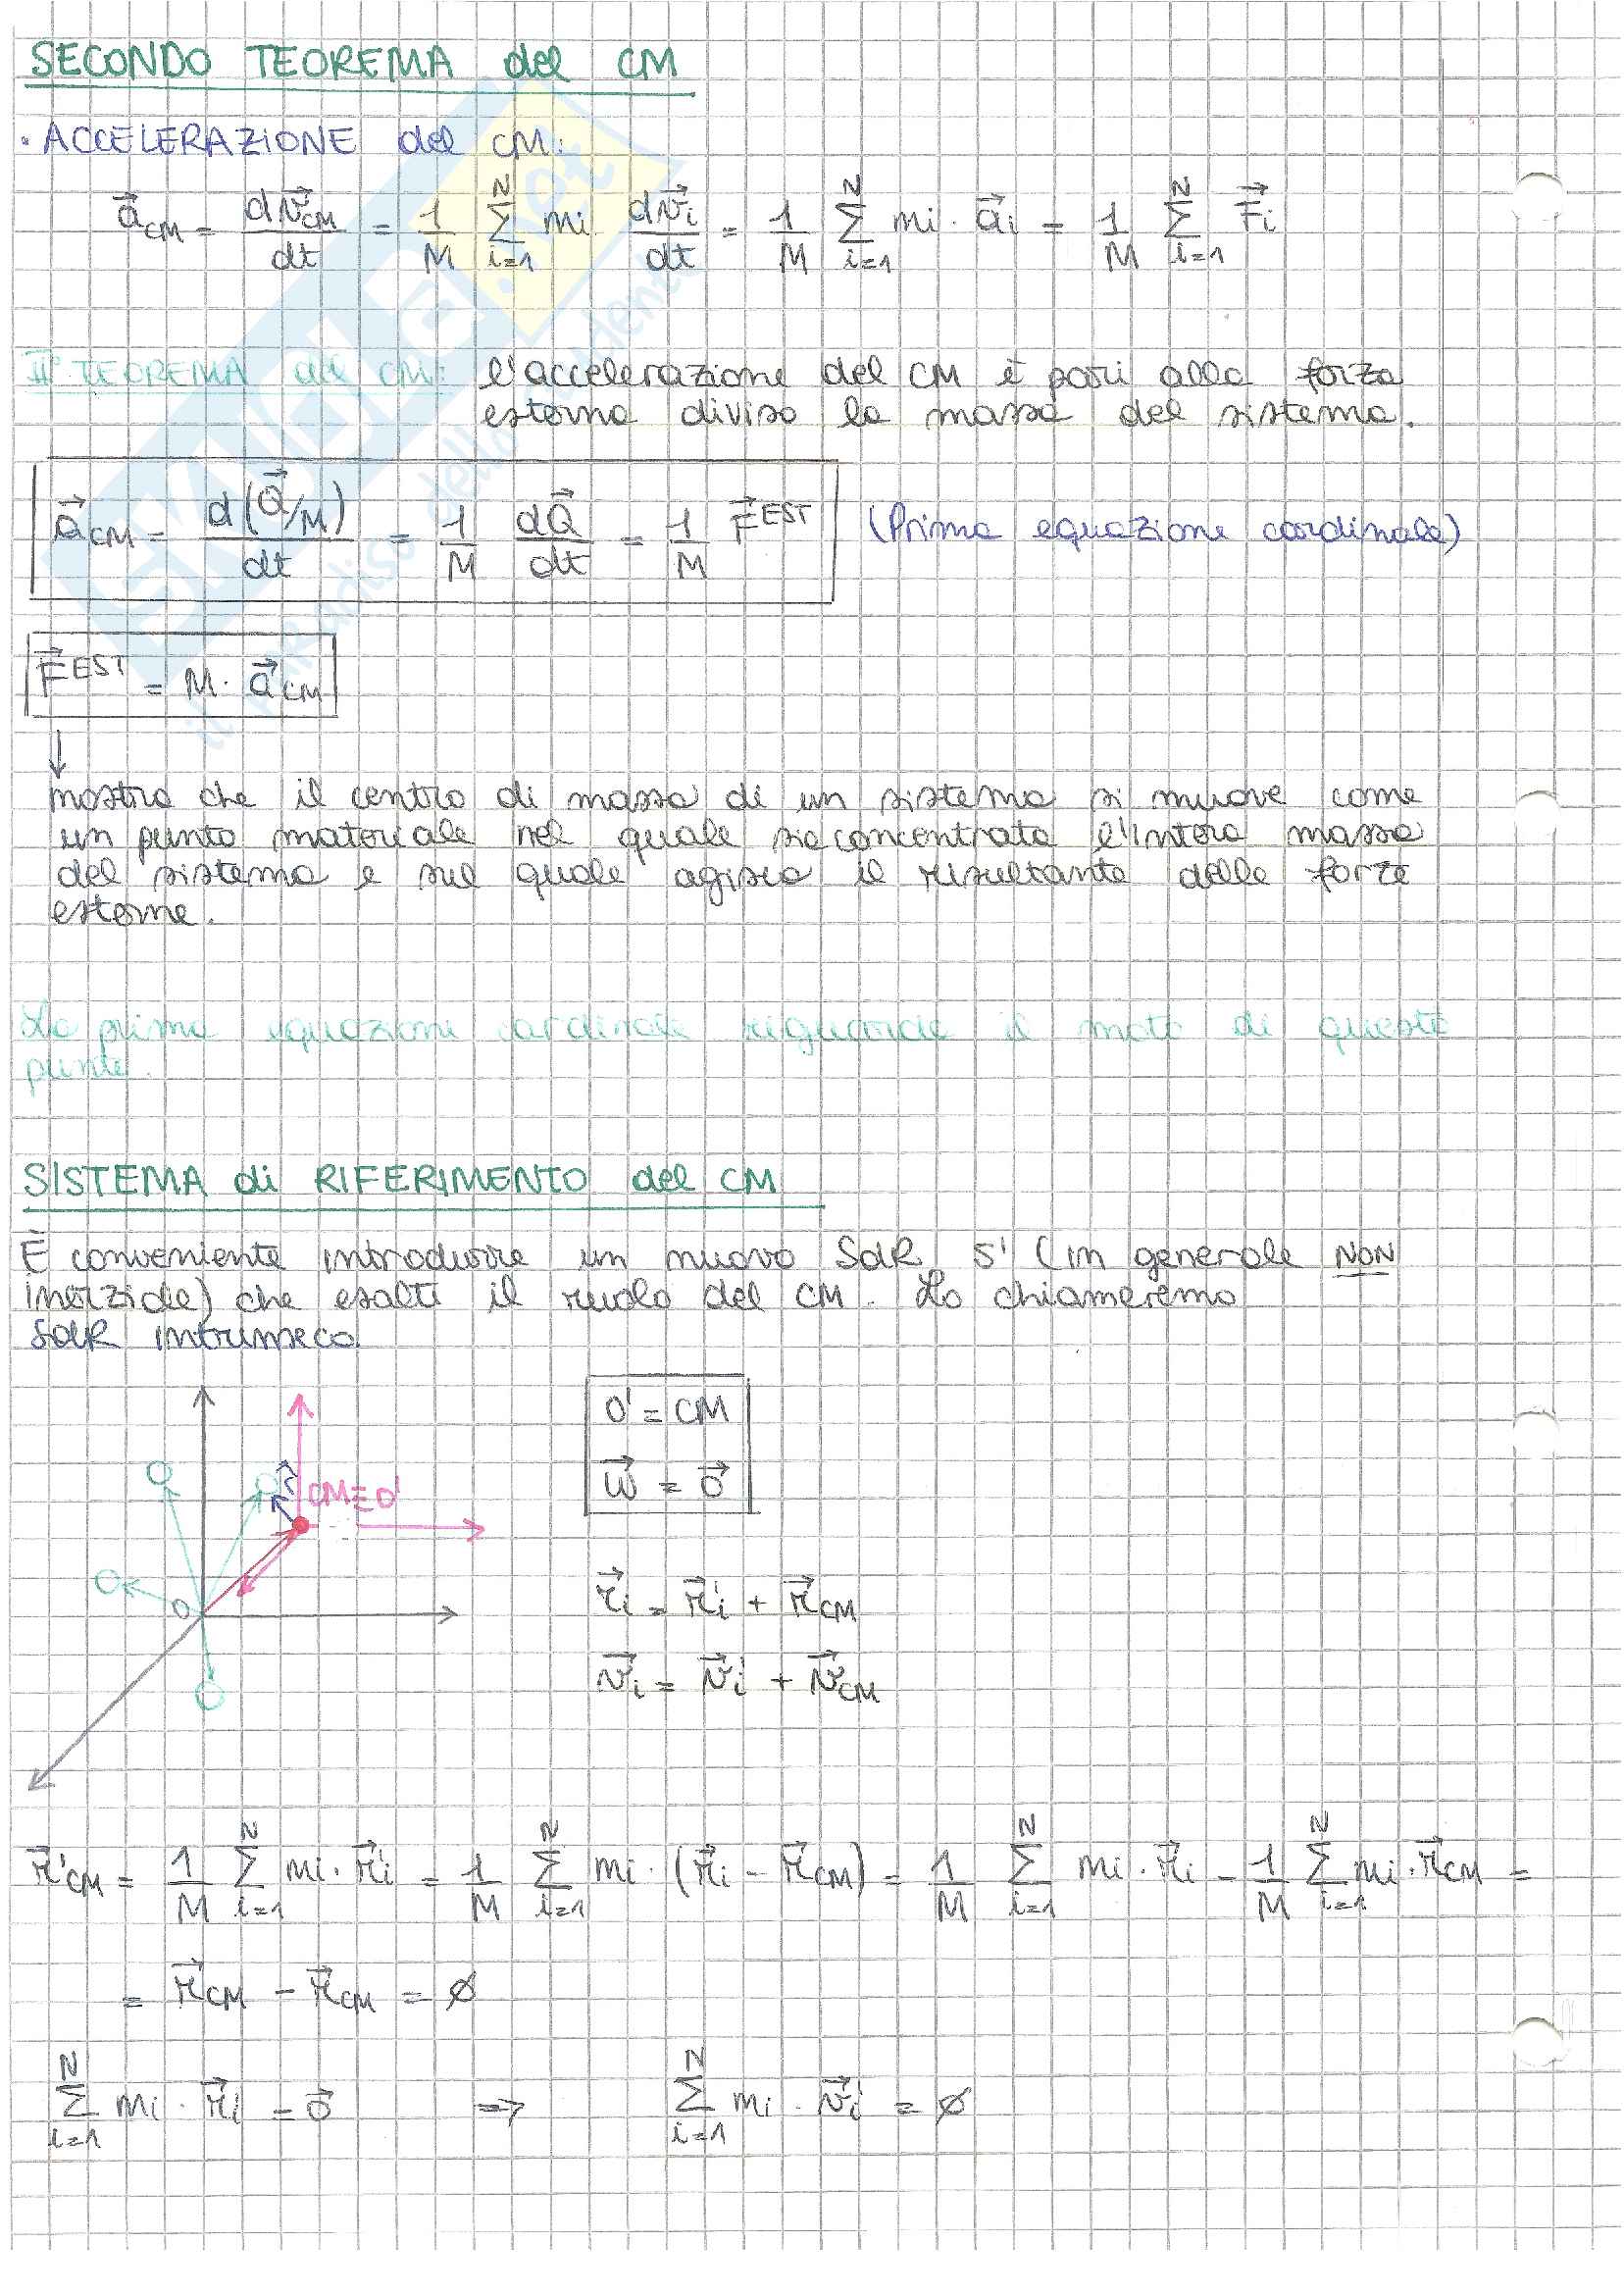 SECONDO TEOREMA del CM
· ACCELERAZIONE del CM:
a⃗CM = dv⃗CM/dt = 1/M ∑_{i=1}^{N} mi dv⃗i/dt = 1/M ∑_{i=1}^{N} mi · a⃗i = 1/M ∑_{i=1}^{N} F⃗i
II° TEOREMA del CM: l'accelerazione del CM è pari alla forza
esterna diviso la massa del sistema.
a⃗CM = d(Q⃗/M)/dt = 1/M dQ⃗/dt = 1/M F⃗^EST (Prima equazione cardinale)
F⃗^EST = M · a⃗CM
↓
mostra che il centro di massa di un sistema si muove come
un punto materiale nel quale sia concentrata l'intera massa
del sistema e sul quale agisca il risultante delle forze
esterne.
La prima equazione cardinale riguarda il moto di questo
punto.
SISTEMA di RIFERIMENTO del CM
È conveniente introdurre un nuovo SdR S' (in generale NON
inerziale) che esalti il ruolo del CM. Lo chiameremo
SdR intrinseco.
O' = CM
ω⃗ = 0⃗
CM≡O'
O
r⃗i = r⃗'i + r⃗CM
v⃗i = v⃗'i + v⃗CM
r⃗'CM = 1/M ∑_{i=1}^{N} mi · r⃗'i = 1/M ∑_{i=1}^{N} mi · (r⃗i − r⃗CM) = 1/M ∑_{i=1}^{N} mi · r⃗i − 1/M ∑_{i=1}^{N} mi · r⃗CM =
= r⃗CM − r⃗CM = ∅
∑_{i=1}^{N} mi · r⃗'i = 0⃗ ⇒ ∑_{i=1}^{N} mi · v⃗'i = ∅